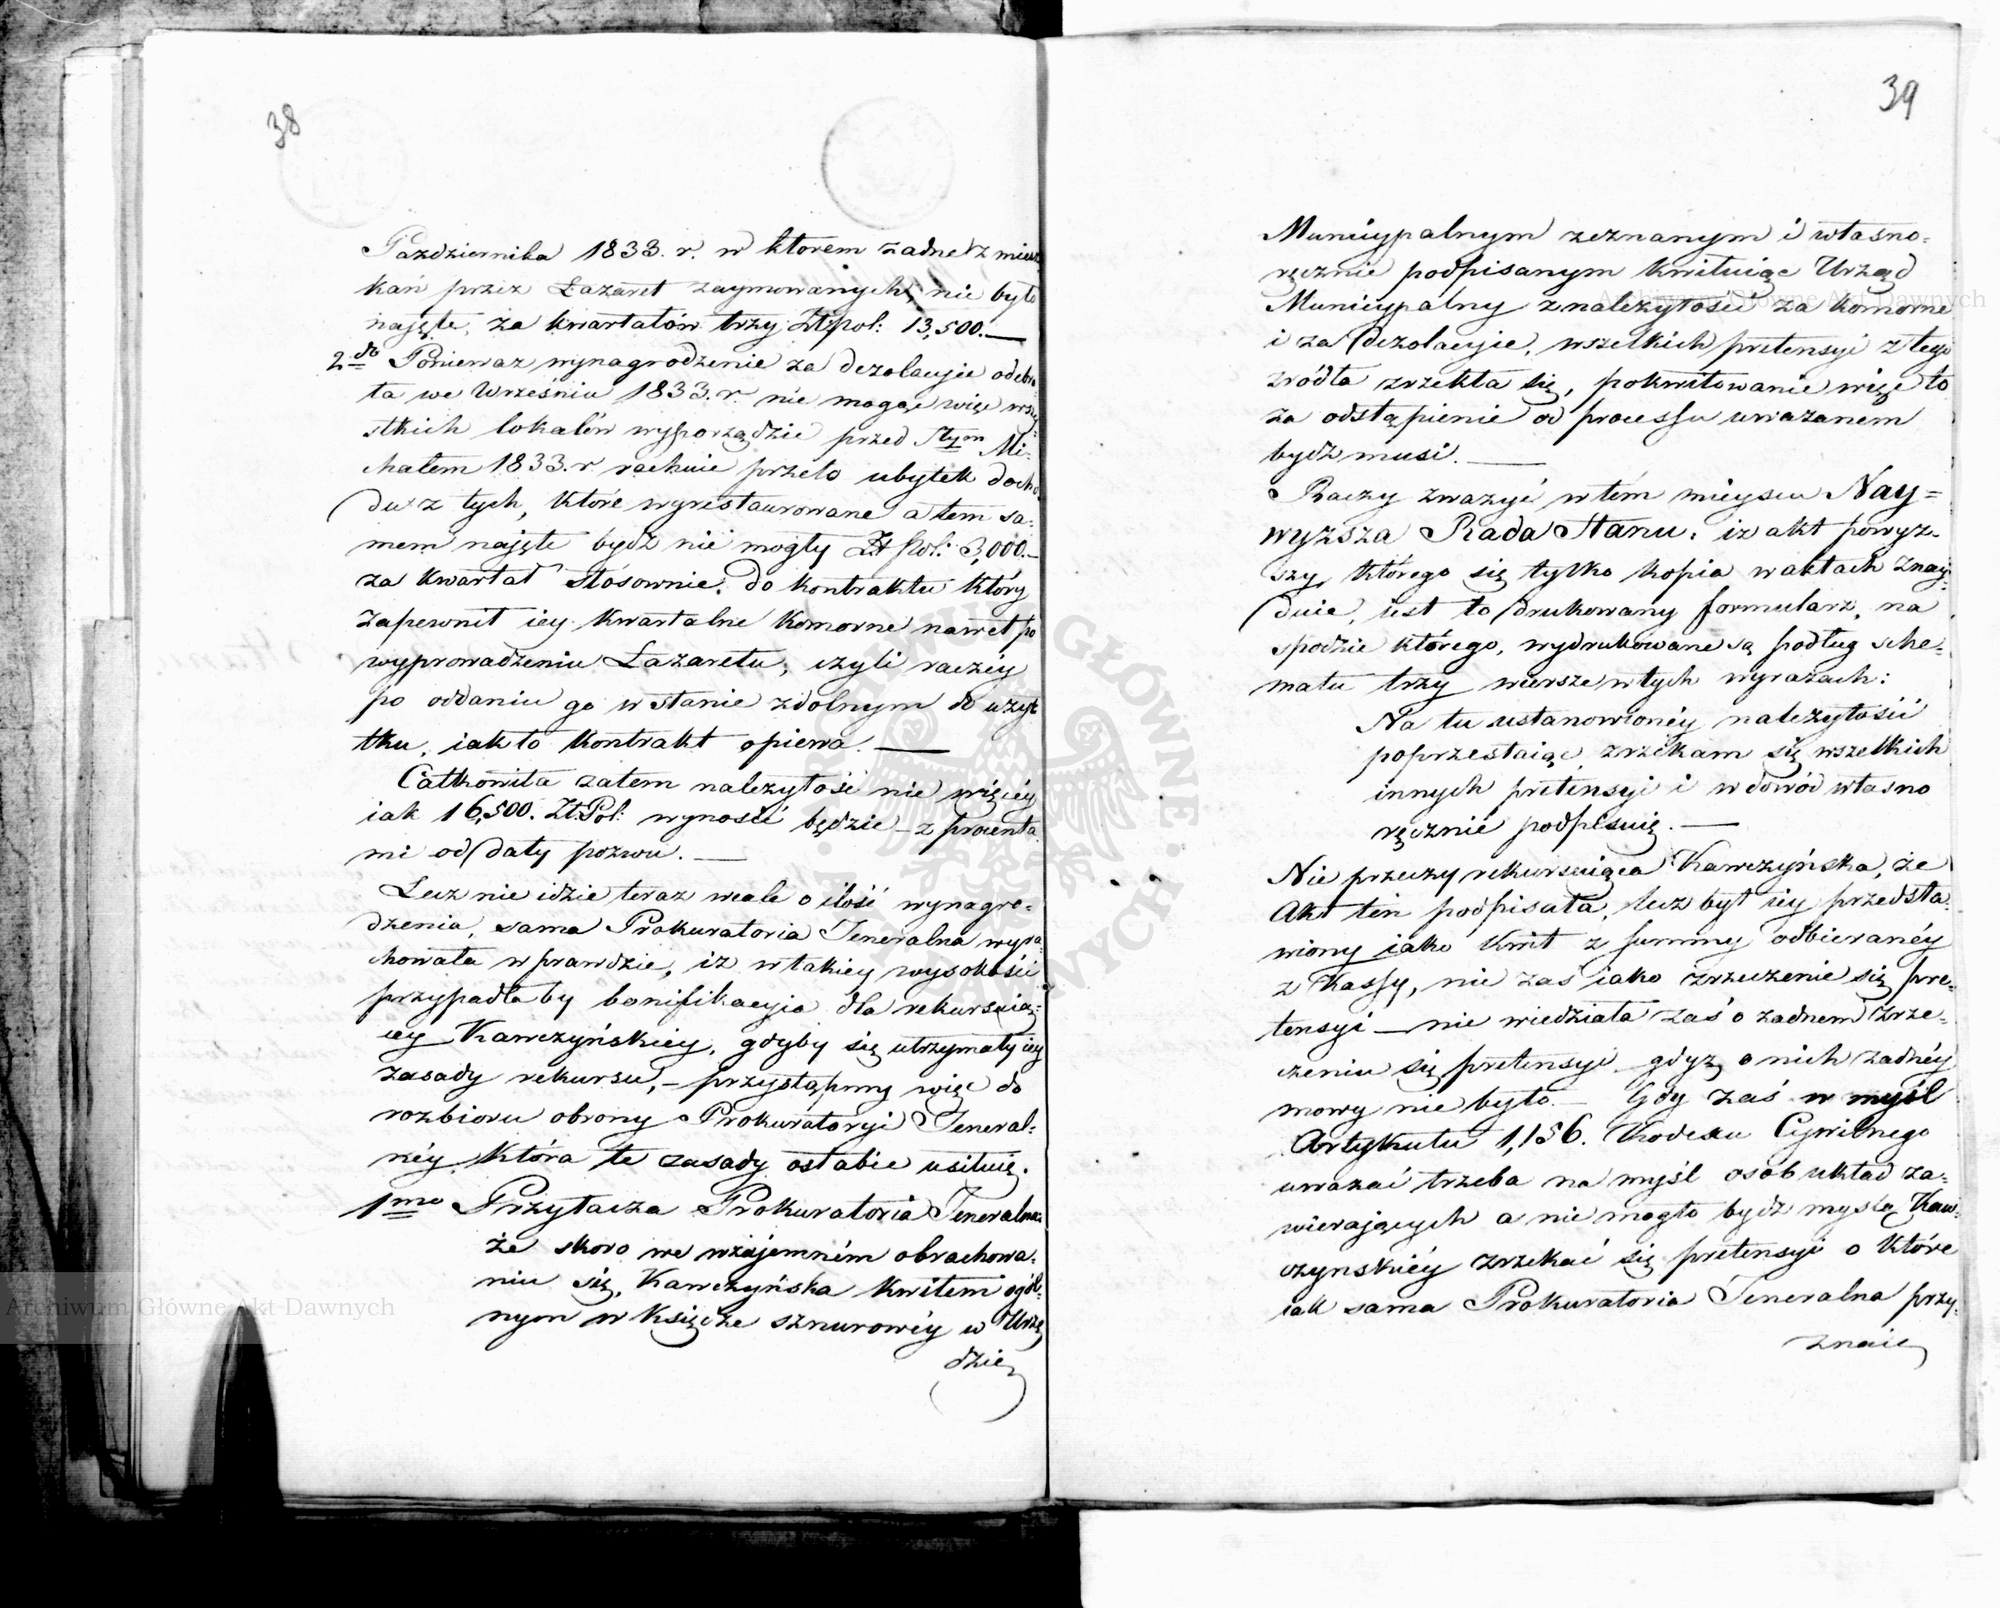 38
Pazdziernika 1833. r. w ktorem żadne z miesz
kań przez Lazaret zaymowanych, nie było
najęte, za kwartałów trzy Ztpol: 13,500.—
2do Ponieważ wynagrodzenie za dezolacyie odebra
ła we Wrześniu 1833. r. nie mogąc więc wszy=
stkich lokalów wyporządzić przed Stym Mi=
chałem 1833. r. rachuie przeto ubytek docho
du z tych, które wyrestaurowane a tem sa=
mem najęte bydź nie mogły Zł pol: 3,000.—
za kwartał stosownie do kontraktu który
zapewnił iey kwartalne komorne nawet po
wyprowadzeniu Lazaretu, czyli raczéy
po oddaniu go w stanie zdolnym do użyt
tku, iak to kontrakt opiewa.—
Całkowita zatem należytość nie więcéy
iak 16,500. Zt.Pol: wynosić będzie – z procenta
mi od daty pozwu.—
Lecz nie idzie teraz wcale o ilość wynagro=
dzenia, sama Prokuratoria Jeneralna wyra=
chowała w prawdzie, iż w takiey wysokości
przypadła by bonifikacyia dla rekursuią=
cey Kawczyńskiey, gdyby się utrzymały iey
zasady rekursu, – przystąpmy więc do
rozbioru obrony Prokuratoryi Jeneral=
néy która te zasady osłabić usiłuię.
1mo Przytacza Prokuratoria Jeneralna
że skoro we wzajemném obrachowa=
niu się, Kawczyńska kwitem ogól=
nym w Księdze sznurowéy w Urzę
dzie
39
Municypalnym zeznanym i własno=
ręcznie podpisanym kwituiąc Urząd
Municypalny z należytości za komorne
i za dezolacyie, wszelkich pretensyi z tego
zródła zrzekła się, pokwitowanie więc to
za odstąpienie od processu uważanem
bydź musi.—
Raczy zważyć w tém mieyscu Nay=
wyższa Rada Stanu, iż akt powyż=
szy, którego się tylko kopia w aktach znay=
duie, iest to drukowany formularz, na
spodzie którego, wydrukowane są podług sche=
matu trzy wiersze w tych wyrazach:
Na tu ustanowionéy należytości
poprzestaiąc, zrzékam się wszelkich
innych pretensyi i w dowód własno
ręcznie podpisuię.—
Nie przeczy rekursuiąca Kawczyńska, że
Akt ten podpisała, lecz był iey przedsta=
wiony iako kwit z summy odbieranéy
z Kassy, nie zaś iako zrzeczenie się pre=
tensyi — nie wiedziała zaś o żadnem zrze=
czeniu się pretensyi gdyż o nich żadnéy
mowy nie było — Gdy zaś w myśl
Artykułu 1,156. Kodexu Cywilnego
uważać trzeba na myśl osób układ za=
wierających a nie mogło bydź myslą Kaw=
czyńskiéy zrzekać się pretensyi o które
iak sama Prokuratoria Jeneralna przy=
znaie
Archiwum Główne Akt Dawnych
Archiwum Główne Akt Dawnych
ARCHIWUM GŁÓWNE AKT DAWNYCH